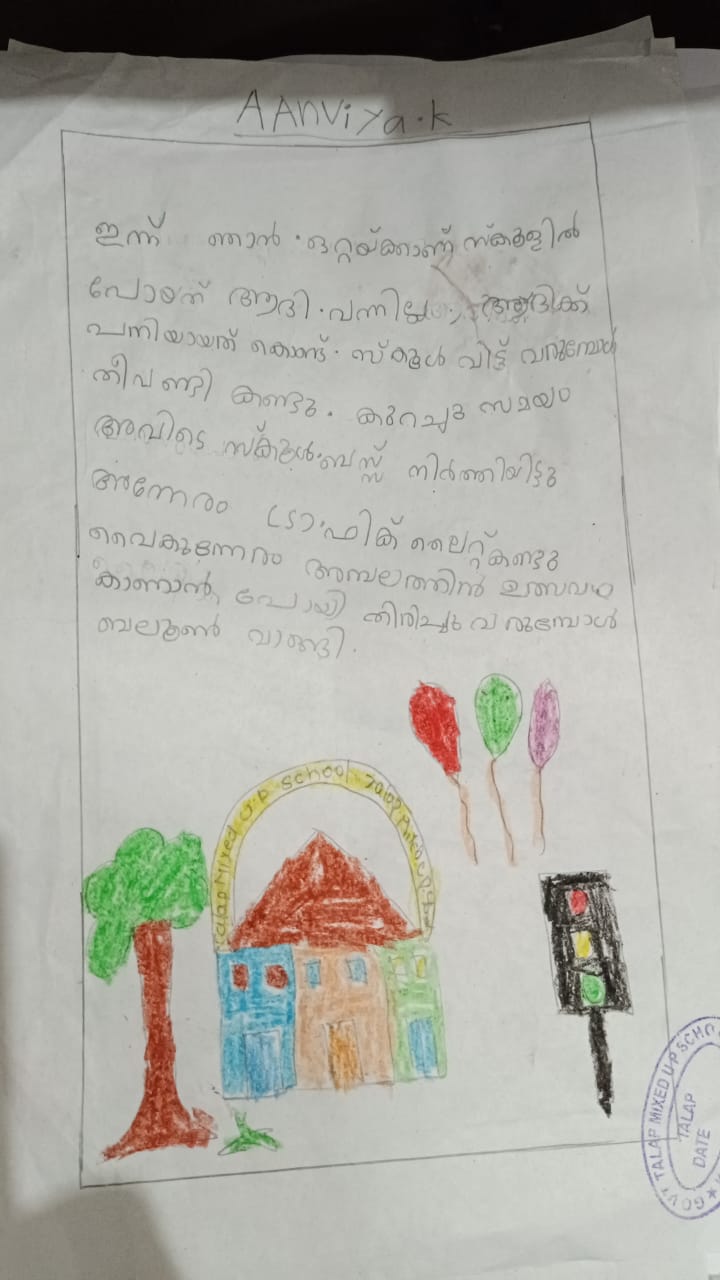 AAnviya.k
ഇന്ന് ഞാൻ ഒറ്റയ്ക്കാണ് സ്കൂളിൽ
പോയത് ആദി വന്നില്ല, ആദിക്ക്
പനിയായത് കൊണ്ട്. സ്കൂൾ വിട്ട് വരുമ്പോൾ
തീവണ്ടി കണ്ടു. കുറച്ചു സമയം
അവിടെ സ്കൂൾ ബസ്സ് നിർത്തിയിട്ടു
അന്നേരം ട്രാഫിക് ലൈറ്റ് കണ്ടു
വൈകുന്നേരം അമ്പലത്തിൻ ഉത്സവം
കാണാൻ പോയി തിരിച്ചു വരുമ്പോൾ
ബലൂൺ വാങ്ങി.
Talap Mixed U.P School Talap
GOVT TALAP MIXED U P SCHO
TALAP
DATE